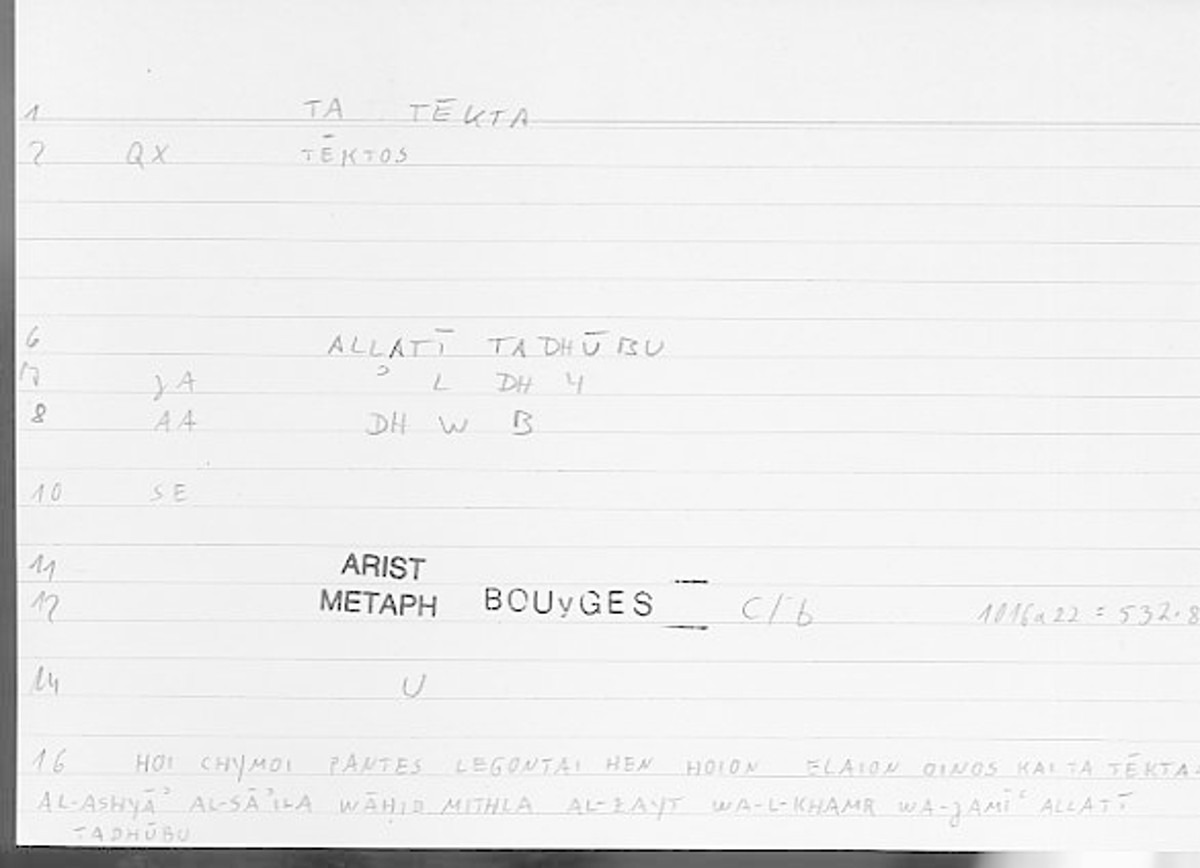 1 TA TĒKTA
2 QX TĒKTOS
6 ALLATĪ TADHŪBU
7 JA ʾ L DH Y
8 AA DH W B
10 SE
11 ARIST
12 METAPH BOUyGES C/b 1016a22 = 532.8
14 U
16 HOI CHYMOI PANTES LEGONTAI HEN HOION ELAION OINOS KAI TA TĒKTA
AL-ASHYĀʾ AL-SĀʾILA WĀḤID MITHLA AL-ZAYT WA-L-KHAMR WA-JAMĪʿ ALLATĪ
TADHŪBU